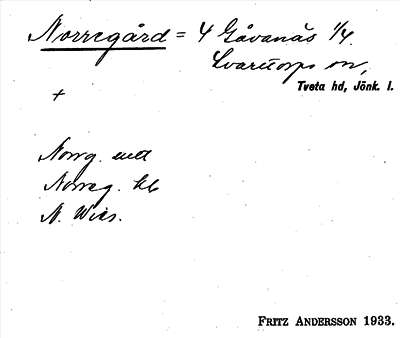 Norregård = 4 Gåvanäs 1/4.
Svarttorps sn,
Tveta hd, Jönk. l.
+
Norrg. ued
Norreg. kb
N. Wies.
FRITZ ANDERSSON 1933.